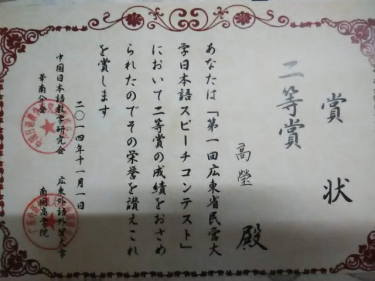 賞状
二等賞
高瑩 殿
あなたは「第一回広東省民営大
学日本語スピーチコンテスト」
において二等賞の成績をおさめ
られたのでその栄誉を讃えこれ
を賞します
二〇一四年十一月一日
中国日本語教学研究会 広東外語外貿大学
華南分会 南国商学院